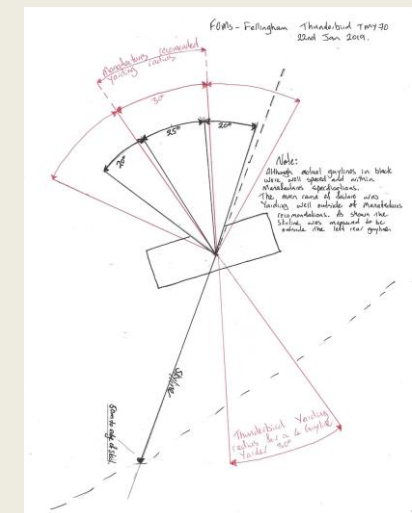 FOMS - Fellingham Thunderbird TMY70
22nd Jan 2019.
Manafactures recomended
Yarding radius
30°
25°
20°
Note:
Although actual guylines in black
were well spaced and within
Manafactures specifications.
The main cause of failure was
Yarding well outside of Manafactures
recomendations. As shown the
Skyline was measured to be
outside the left rear guyline.
Skyline
Thunderbird Yarding
radius for a 4 Guyline
Yarder 30°